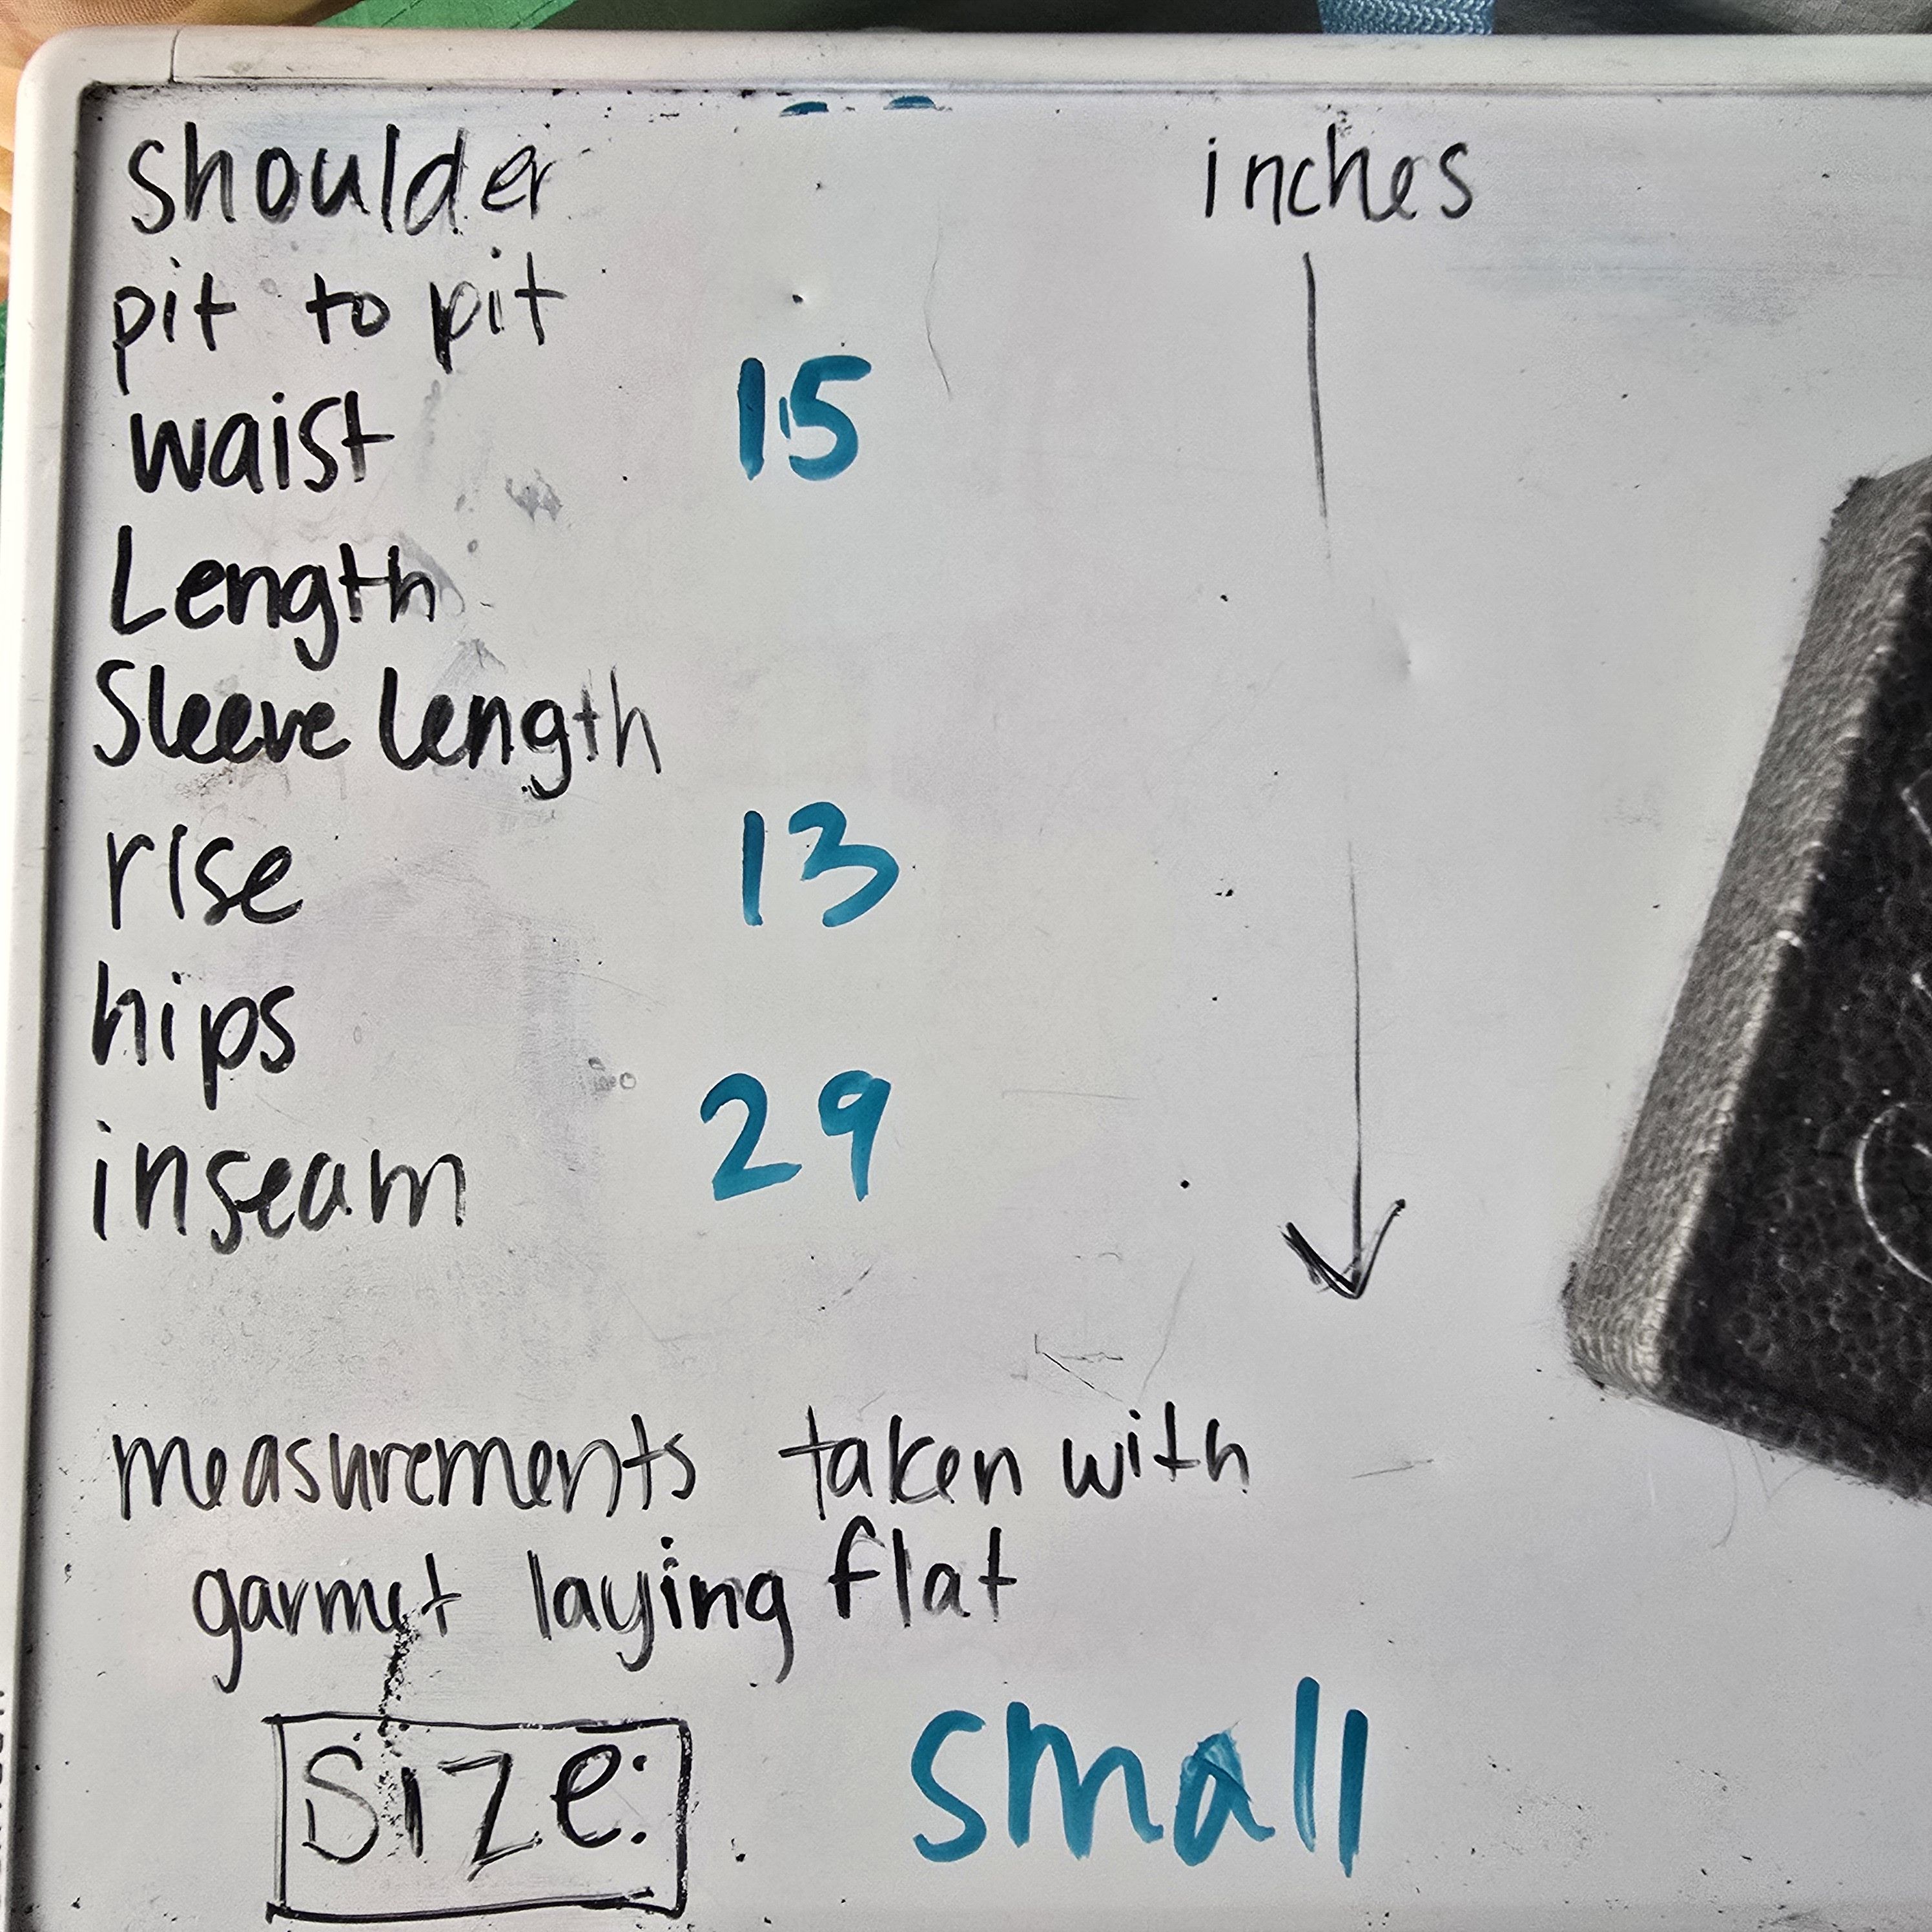 shoulder inches
pit to pit
waist 15
Length
Sleeve length
rise 13
hips
inseam 29
measurements taken with
garmet laying flat
Size: small